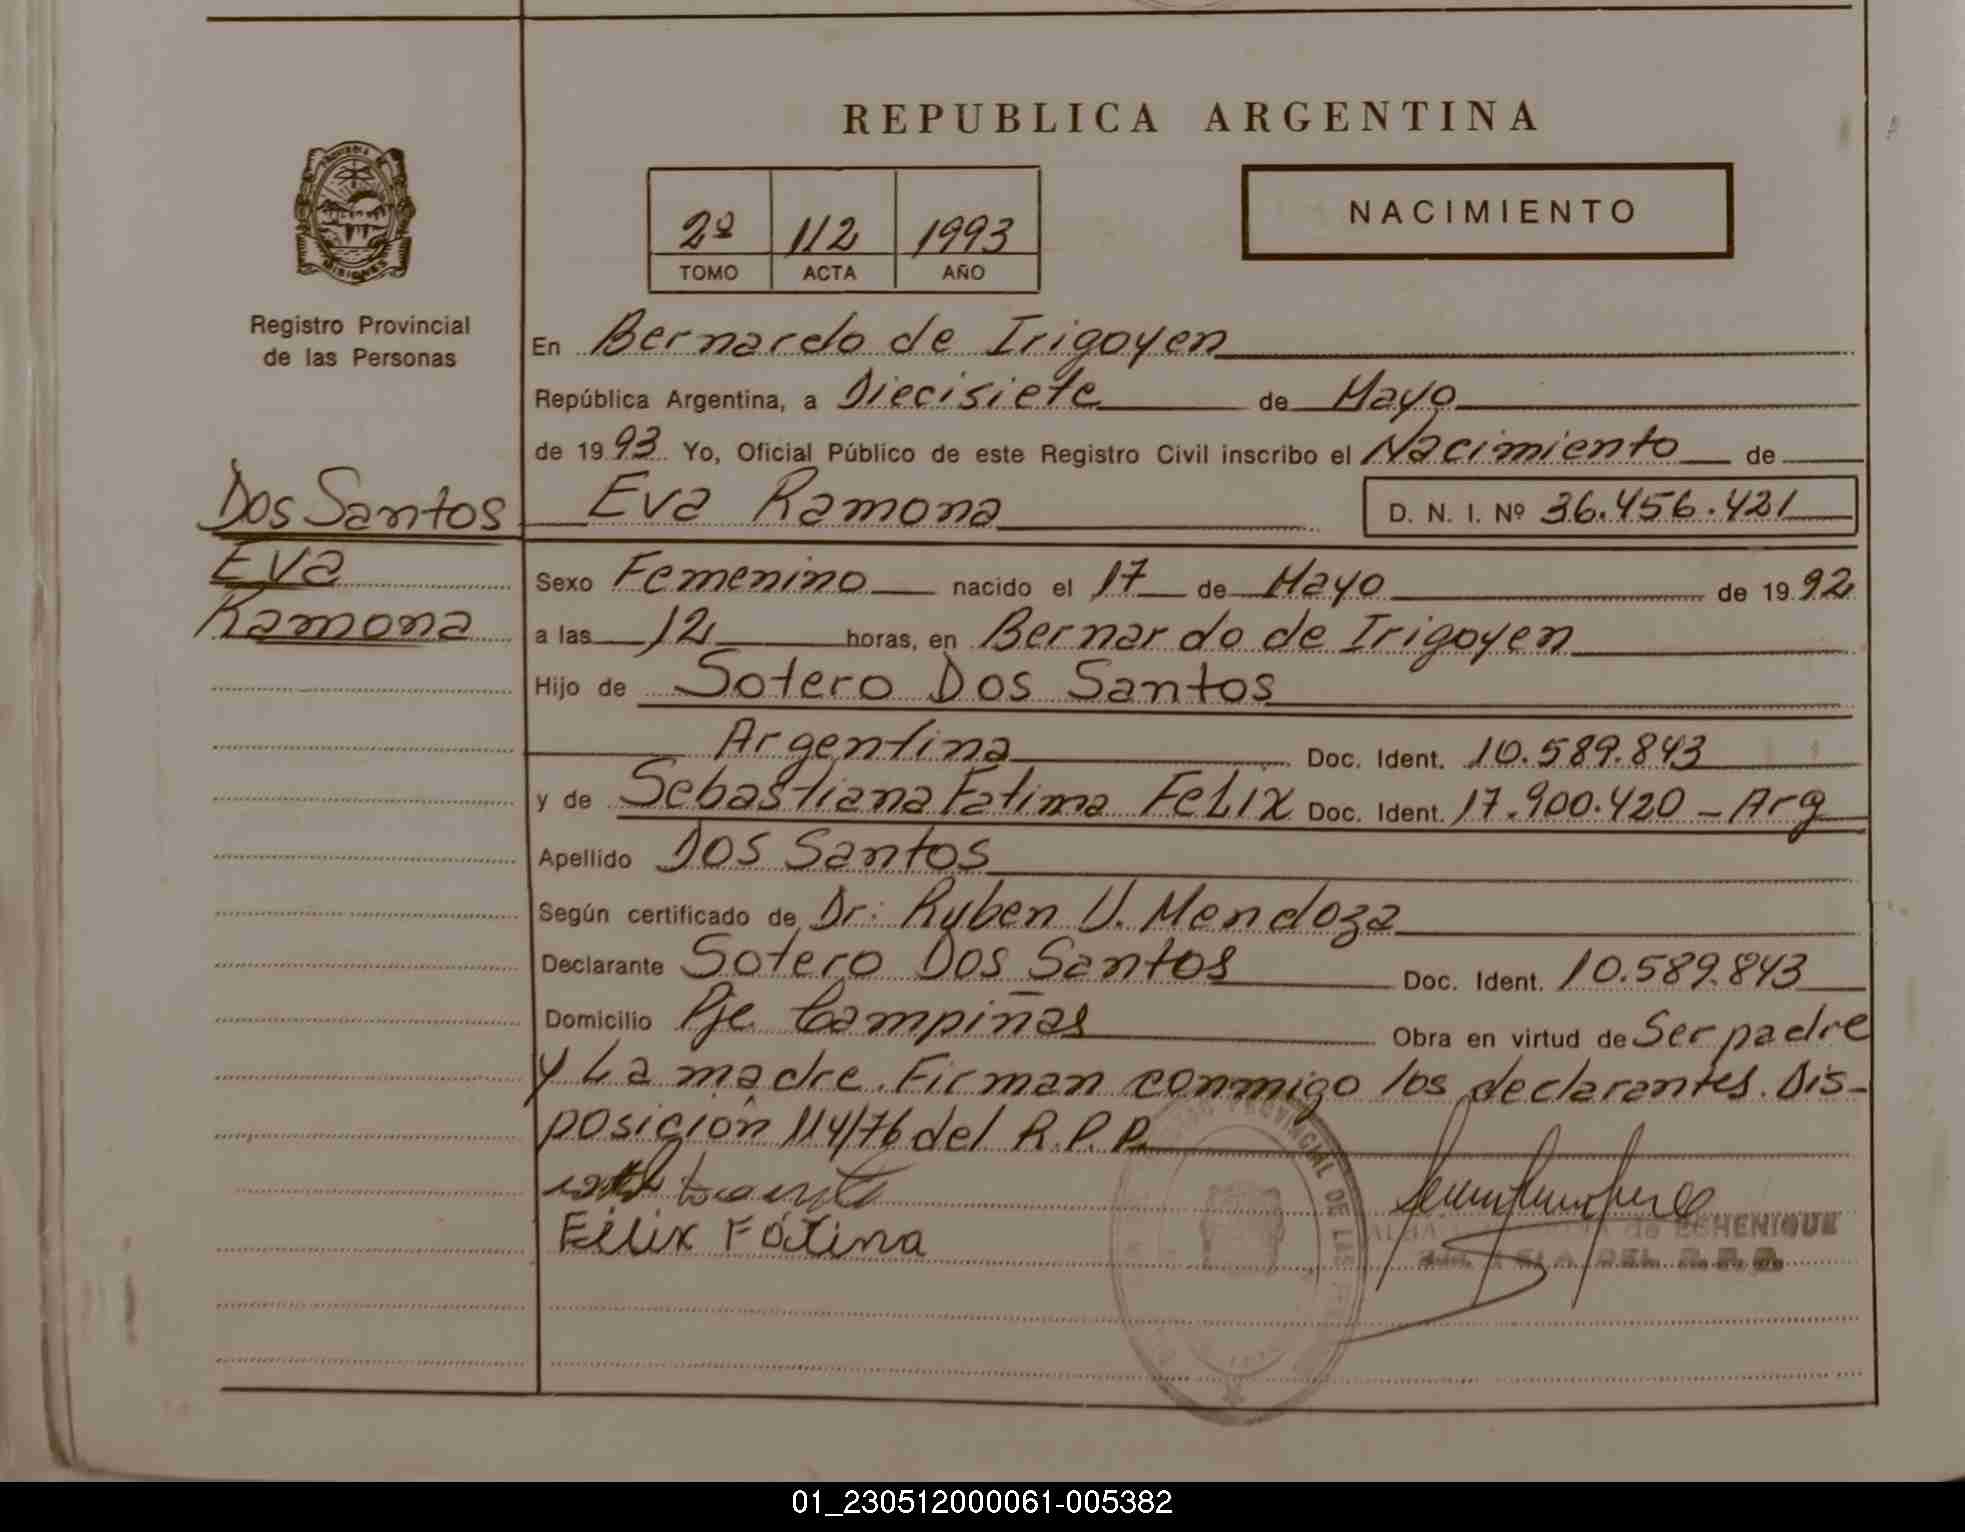 REPUBLICA ARGENTINA
NACIMIENTO
2º 112 1993
TOMO ACTA AÑO
Registro Provincial
de las Personas
En Bernardo de Irigoyen
República Argentina, a Diecisiete de Mayo
de 1993 Yo, Oficial Público de este Registro Civil inscribo el Nacimiento de
Dos Santos
Eva Ramona D. N. I. Nº 36.456.421
Eva
Ramona
Sexo Femenino nacido el 17 de Mayo de 1992
a las 12 horas, en Bernardo de Irigoyen
Hijo de Sotero Dos Santos
Argentina Doc. Ident. 10.589.843
y de Sebastiana Fatima FeLix Doc. Ident. 17.900.420 - Arg
Apellido Dos Santos
Según certificado de Dr: Ruben V. Mendoza
Declarante Sotero Dos Santos Doc. Ident. 10.589.843
Domicilio Pje Campiñas Obra en virtud de Ser padre
y La madre. Firman conmigo los declarantes. Dis-
posición 114/76 del R.P.P.
Félix Fátina
PROVINCIAL DE LAS
de ECHENIQUE
DEL R.P.P.
01_230512000061-005382